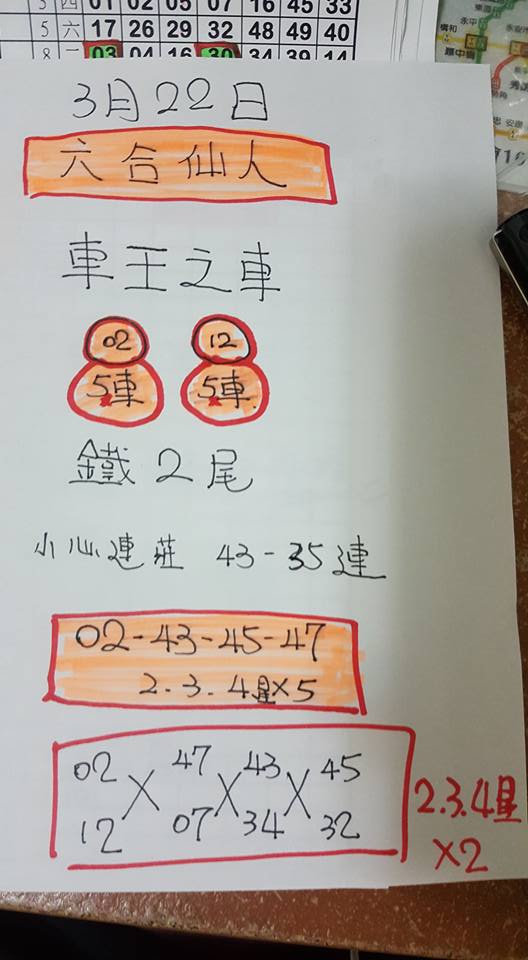 01 02 05 07 16 45 33
5 六 17 26 29 32 48 49 40
8 二 03 04 16 30 34 39 14
3月22日
六合仙人
車王之車
02 12
5車 5車.
鐵2尾
小心連莊 43-35連
02-43-45-47
2.3.4星×5
02 47 43 45
× × ×
12 07 34 32
2.3.4星
×2